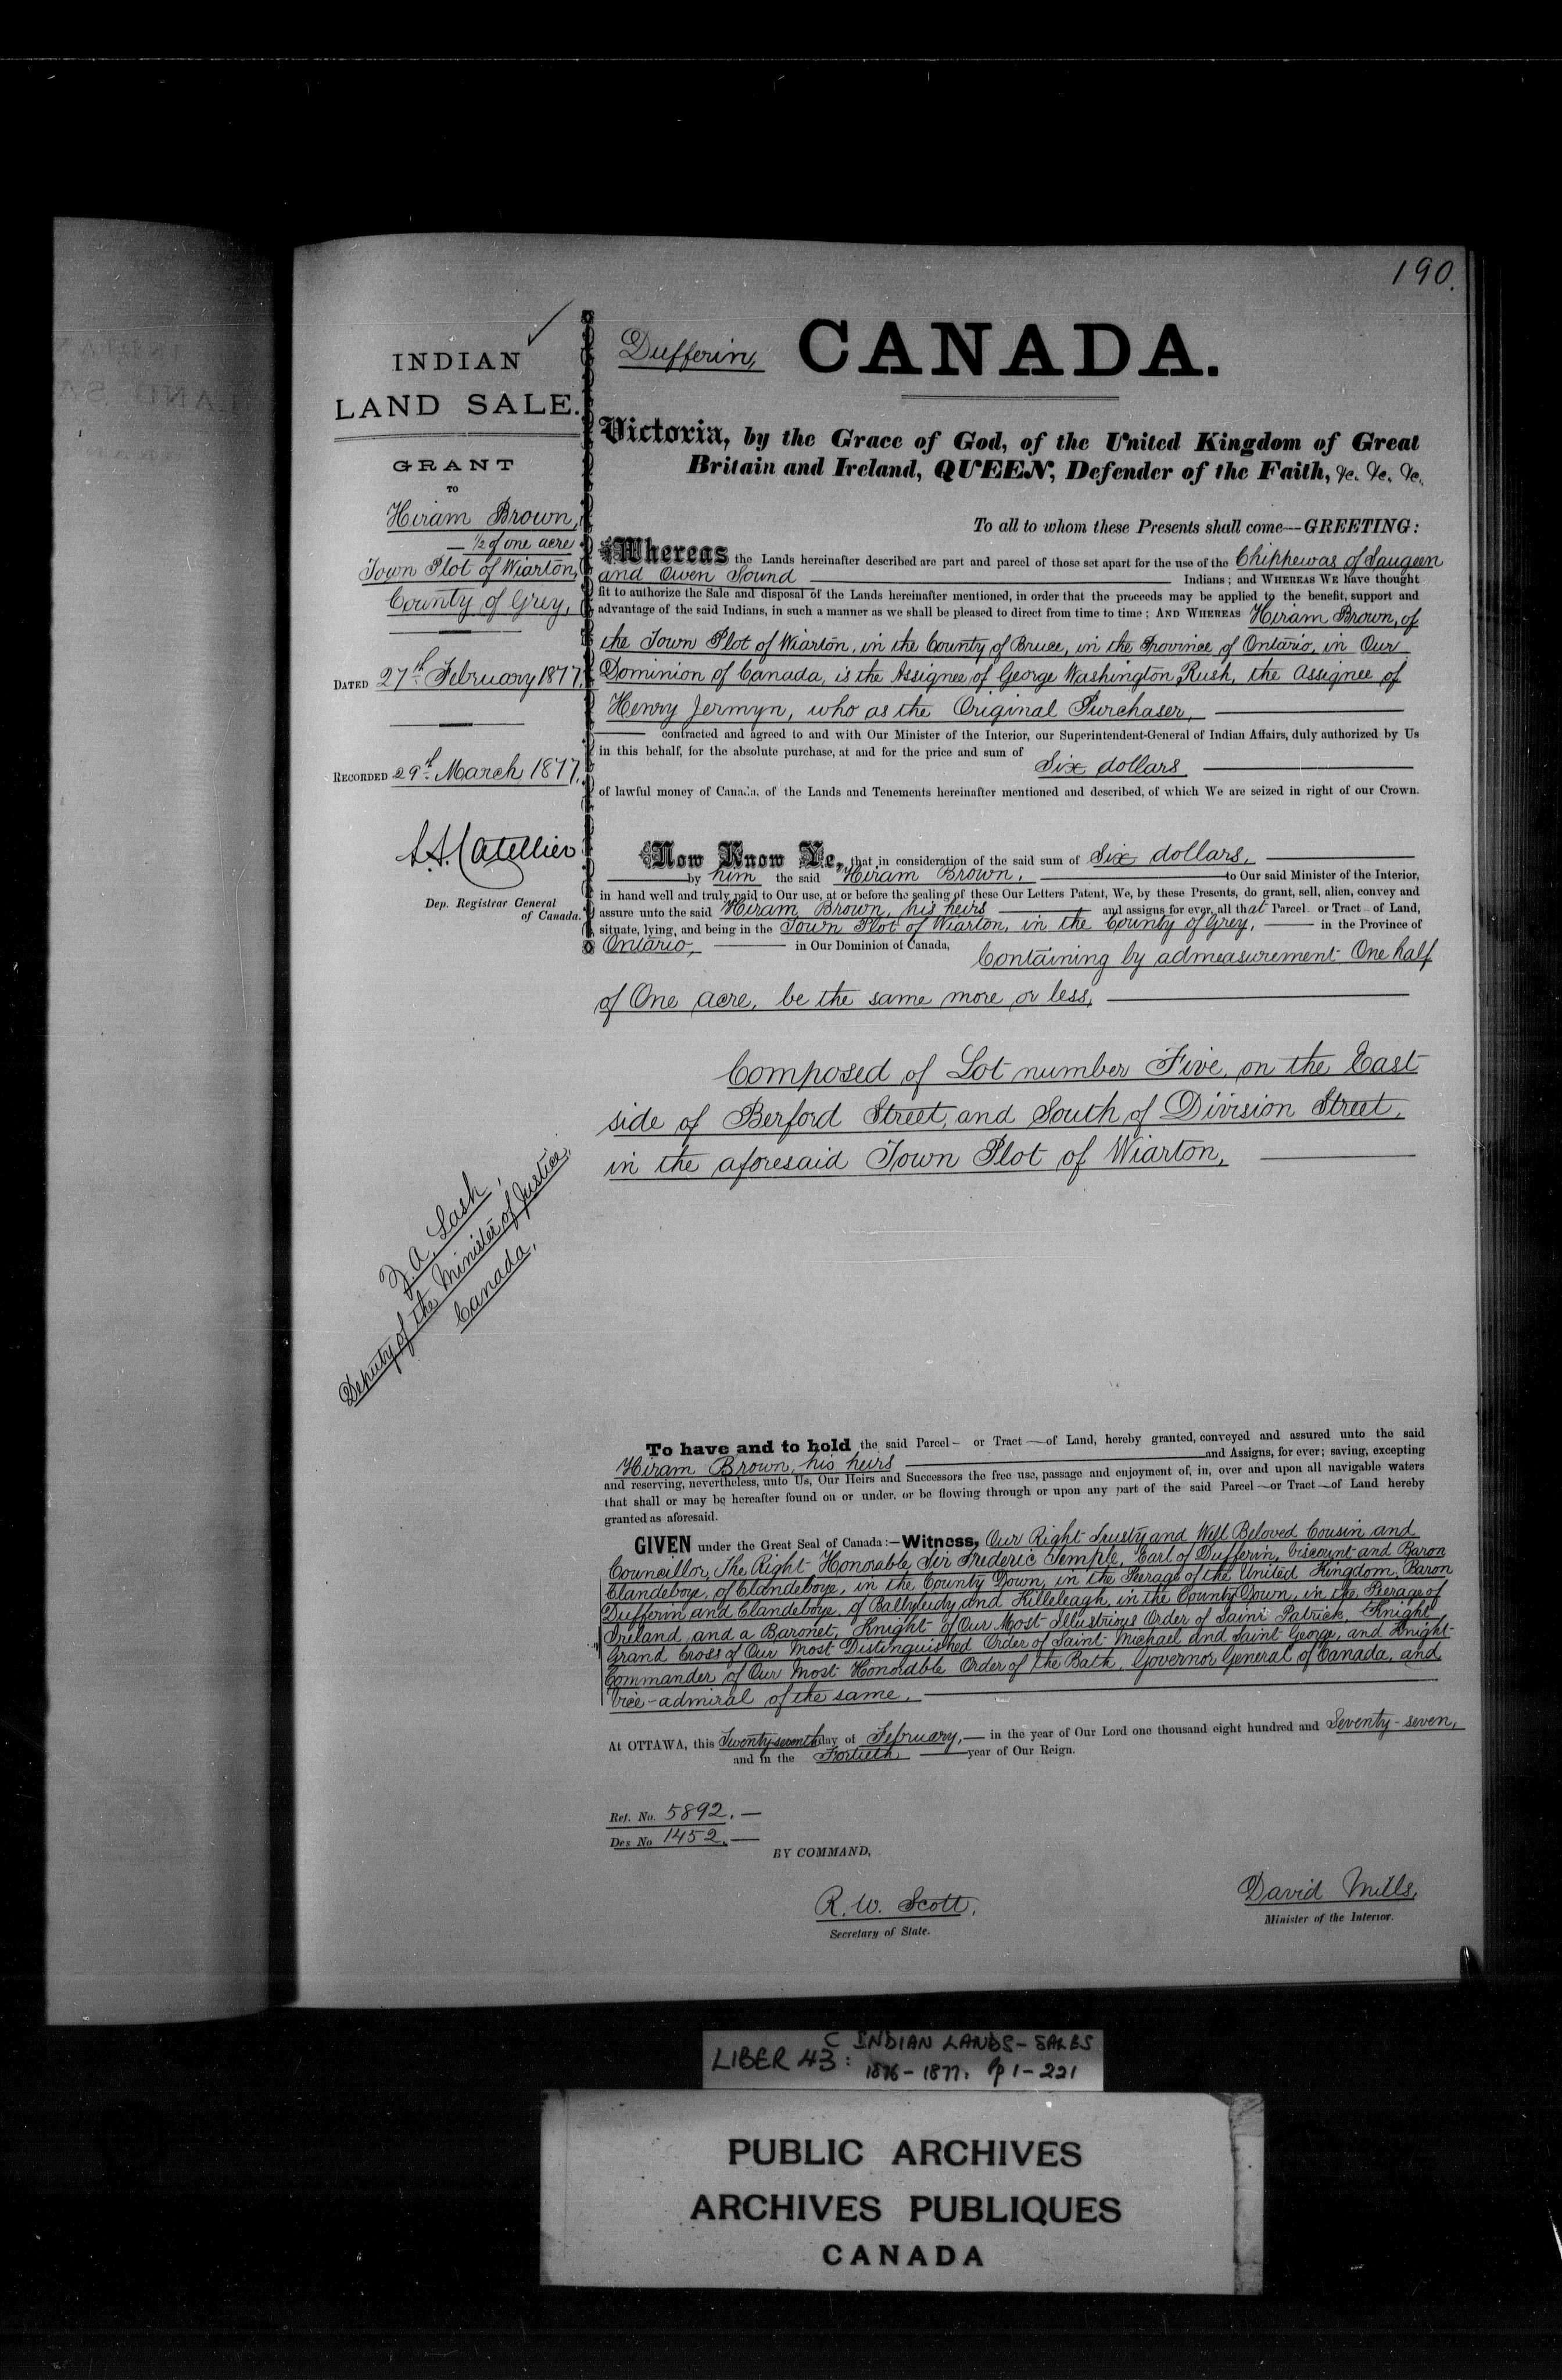 190.
INDIAN
LAND SALE.
GRANT
TO
Hiram Brown,
— 1/2 of one acre
Town Plot of Wiarton,
County of Grey,
DATED 27th February 1877.
RECORDED 29th March 1877.
L.A. Catellier
Dep. Registrar General
of Canada.
Z. A. Lash,
Deputy of the Minister of Justice,
Canada.
Dufferin, CANADA.
Victoria, by the Grace of God, of the United Kingdom of Great
Britain and Ireland, QUEEN, Defender of the Faith, &c. &c. &c.
To all to whom these Presents shall come—GREETING:
Whereas the Lands hereinafter described are part and parcel of those set apart for the use of the Chippewas of Saugeen
and Owen Sound Indians; and WHEREAS WE have thought
fit to authorize the Sale and disposal of the Lands hereinafter mentioned, in order that the proceeds may be applied to the benefit, support and
advantage of the said Indians, in such a manner as we shall be pleased to direct from time to time; AND WHEREAS Hiram Brown, of
the Town Plot of Wiarton, in the County of Bruce, in the Province of Ontario, in Our
Dominion of Canada, is the Assignee of George Washington Rush, the Assignee of
Henry Jermyn, who as the Original Purchaser,
contracted and agreed to and with Our Minister of the Interior, our Superintendent-General of Indian Affairs, duly authorized by Us
in this behalf, for the absolute purchase, at and for the price and sum of
Six dollars
of lawful money of Canada, of the Lands and Tenements hereinafter mentioned and described, of which We are seized in right of our Crown.
Now Know Ye, that in consideration of the said sum of Six dollars,
by him the said Hiram Brown, to Our said Minister of the Interior,
in hand well and truly paid to Our use, at or before the sealing of these Our Letters Patent, We, by these Presents, do grant, sell, alien, convey and
assure unto the said Hiram Brown, his heirs and assigns for ever, all that Parcel or Tract of Land,
situate, lying, and being in the Town Plot of Wiarton, in the County of Grey, in the Province of
Ontario, in Our Dominion of Canada, Containing by admeasurement One half
of One acre, be the same more or less,
Composed of Lot number Five, on the East
side of Berford Street, and South of Division Street,
in the aforesaid Town Plot of Wiarton,
To have and to hold the said Parcel — or Tract — of Land, hereby granted, conveyed and assured unto the said
Hiram Brown, his heirs and Assigns, for ever; saving, excepting
and reserving, nevertheless, unto Us, Our Heirs and Successors the free use, passage and enjoyment of, in, over and upon all navigable waters
that shall or may be hereafter found on or under, or be flowing through or upon any part of the said Parcel — or Tract — of Land hereby
granted as aforesaid.
GIVEN under the Great Seal of Canada:—Witness, Our Right Trusty and Well Beloved Cousin and
Councillor, The Right Honorable Sir Frederic Temple, Earl of Dufferin, Viscount and Baron
Clandeboye, of Clandeboye, in the County Down, in the Peerage of the United Kingdom, Baron
Dufferin and Clandeboye, of Ballyleidy and Killeleagh, in the County Down, in the Peerage of
Ireland and a Baronet, Knight of Our Most Illustrious Order of Saint Patrick, Knight
Grand Cross of Our Most Distinguished Order of Saint Michael and Saint George, and Knight
Commander of Our Most Honorable Order of the Bath, Governor General of Canada, and
Vice-admiral of the same.
At OTTAWA, this Twenty-seventh day of February, — in the year of Our Lord one thousand eight hundred and Seventy-seven,
and in the Fortieth year of Our Reign.
Ref. No. 5892.—
Des No 1452.—
BY COMMAND,
R. W. Scott,
Secretary of State.
David Mills,
Minister of the Interior.
LIBER 43: C INDIAN LANDS - SALES
1876 - 1877. pp 1 - 221
PUBLIC ARCHIVES
ARCHIVES PUBLIQUES
CANADA